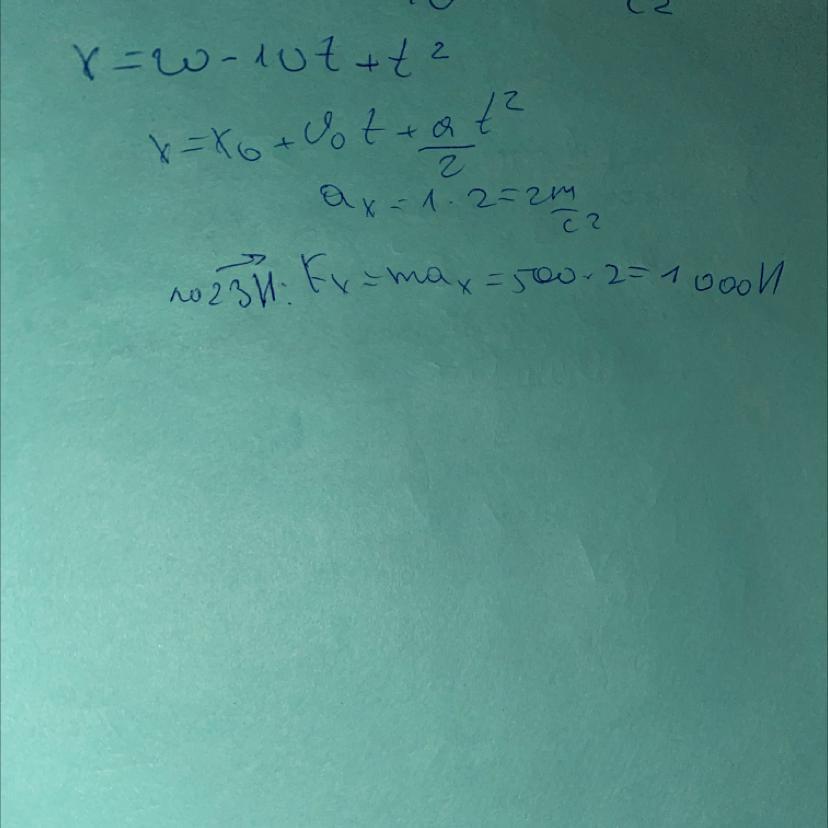 x = 20 - 10t + t²
x = x₀ + v₀t + a/2 t²
aₓ = 1 · 2 = 2 м/с²
по 2ЗН: Fₓ = maₓ = 500 · 2 = 1000Н